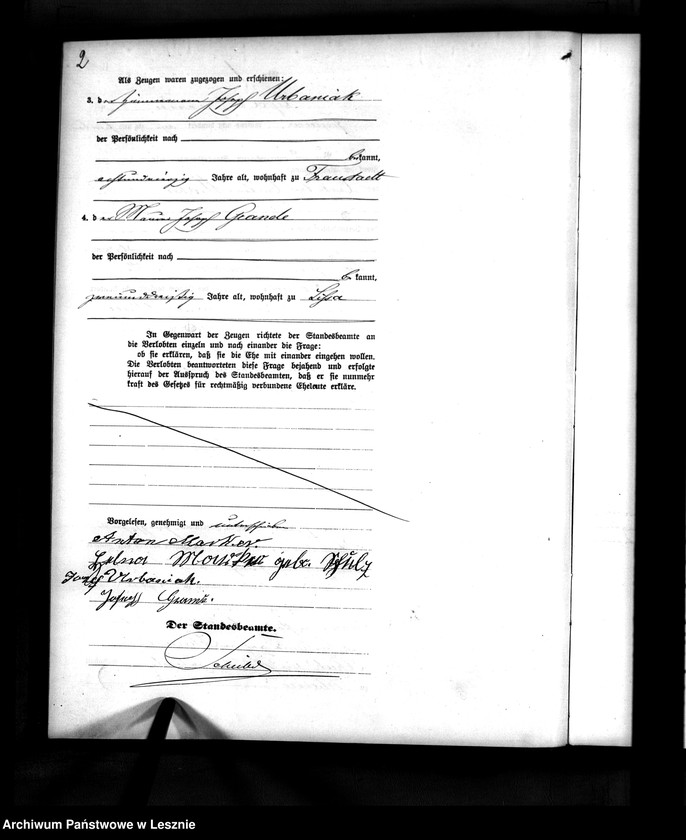 2
Als Zeugen waren zugezogen und erschienen:
3. der Zimmermann Joseph Urbaniak
der Persönlichkeit nach
bekannt,
achtundvierzig Jahre alt, wohnhaft zu Fraustadt
4. der Maurer Joseph Grande
der Persönlichkeit nach
bekannt,
zweiunddreißig Jahre alt, wohnhaft zu Lissa
In Gegenwart der Zeugen richtete der Standesbeamte an
die Verlobten einzeln und nach einander die Frage:
ob sie erklären, daß sie die Ehe mit einander eingehen wollen.
Die Verlobten beantworteten diese Frage bejahend und erfolgte
hierauf der Ausspruch des Standesbeamten, daß er sie nunmehr
kraft des Gesetzes für rechtmäßig verbundene Eheleute erkläre.
Vorgelesen, genehmigt und unterschrieben
Anton
geb. Schulz
Josef Urbaniak.
Joseph
Der Standesbeamte.
Archiwum Państwowe w Lesznie